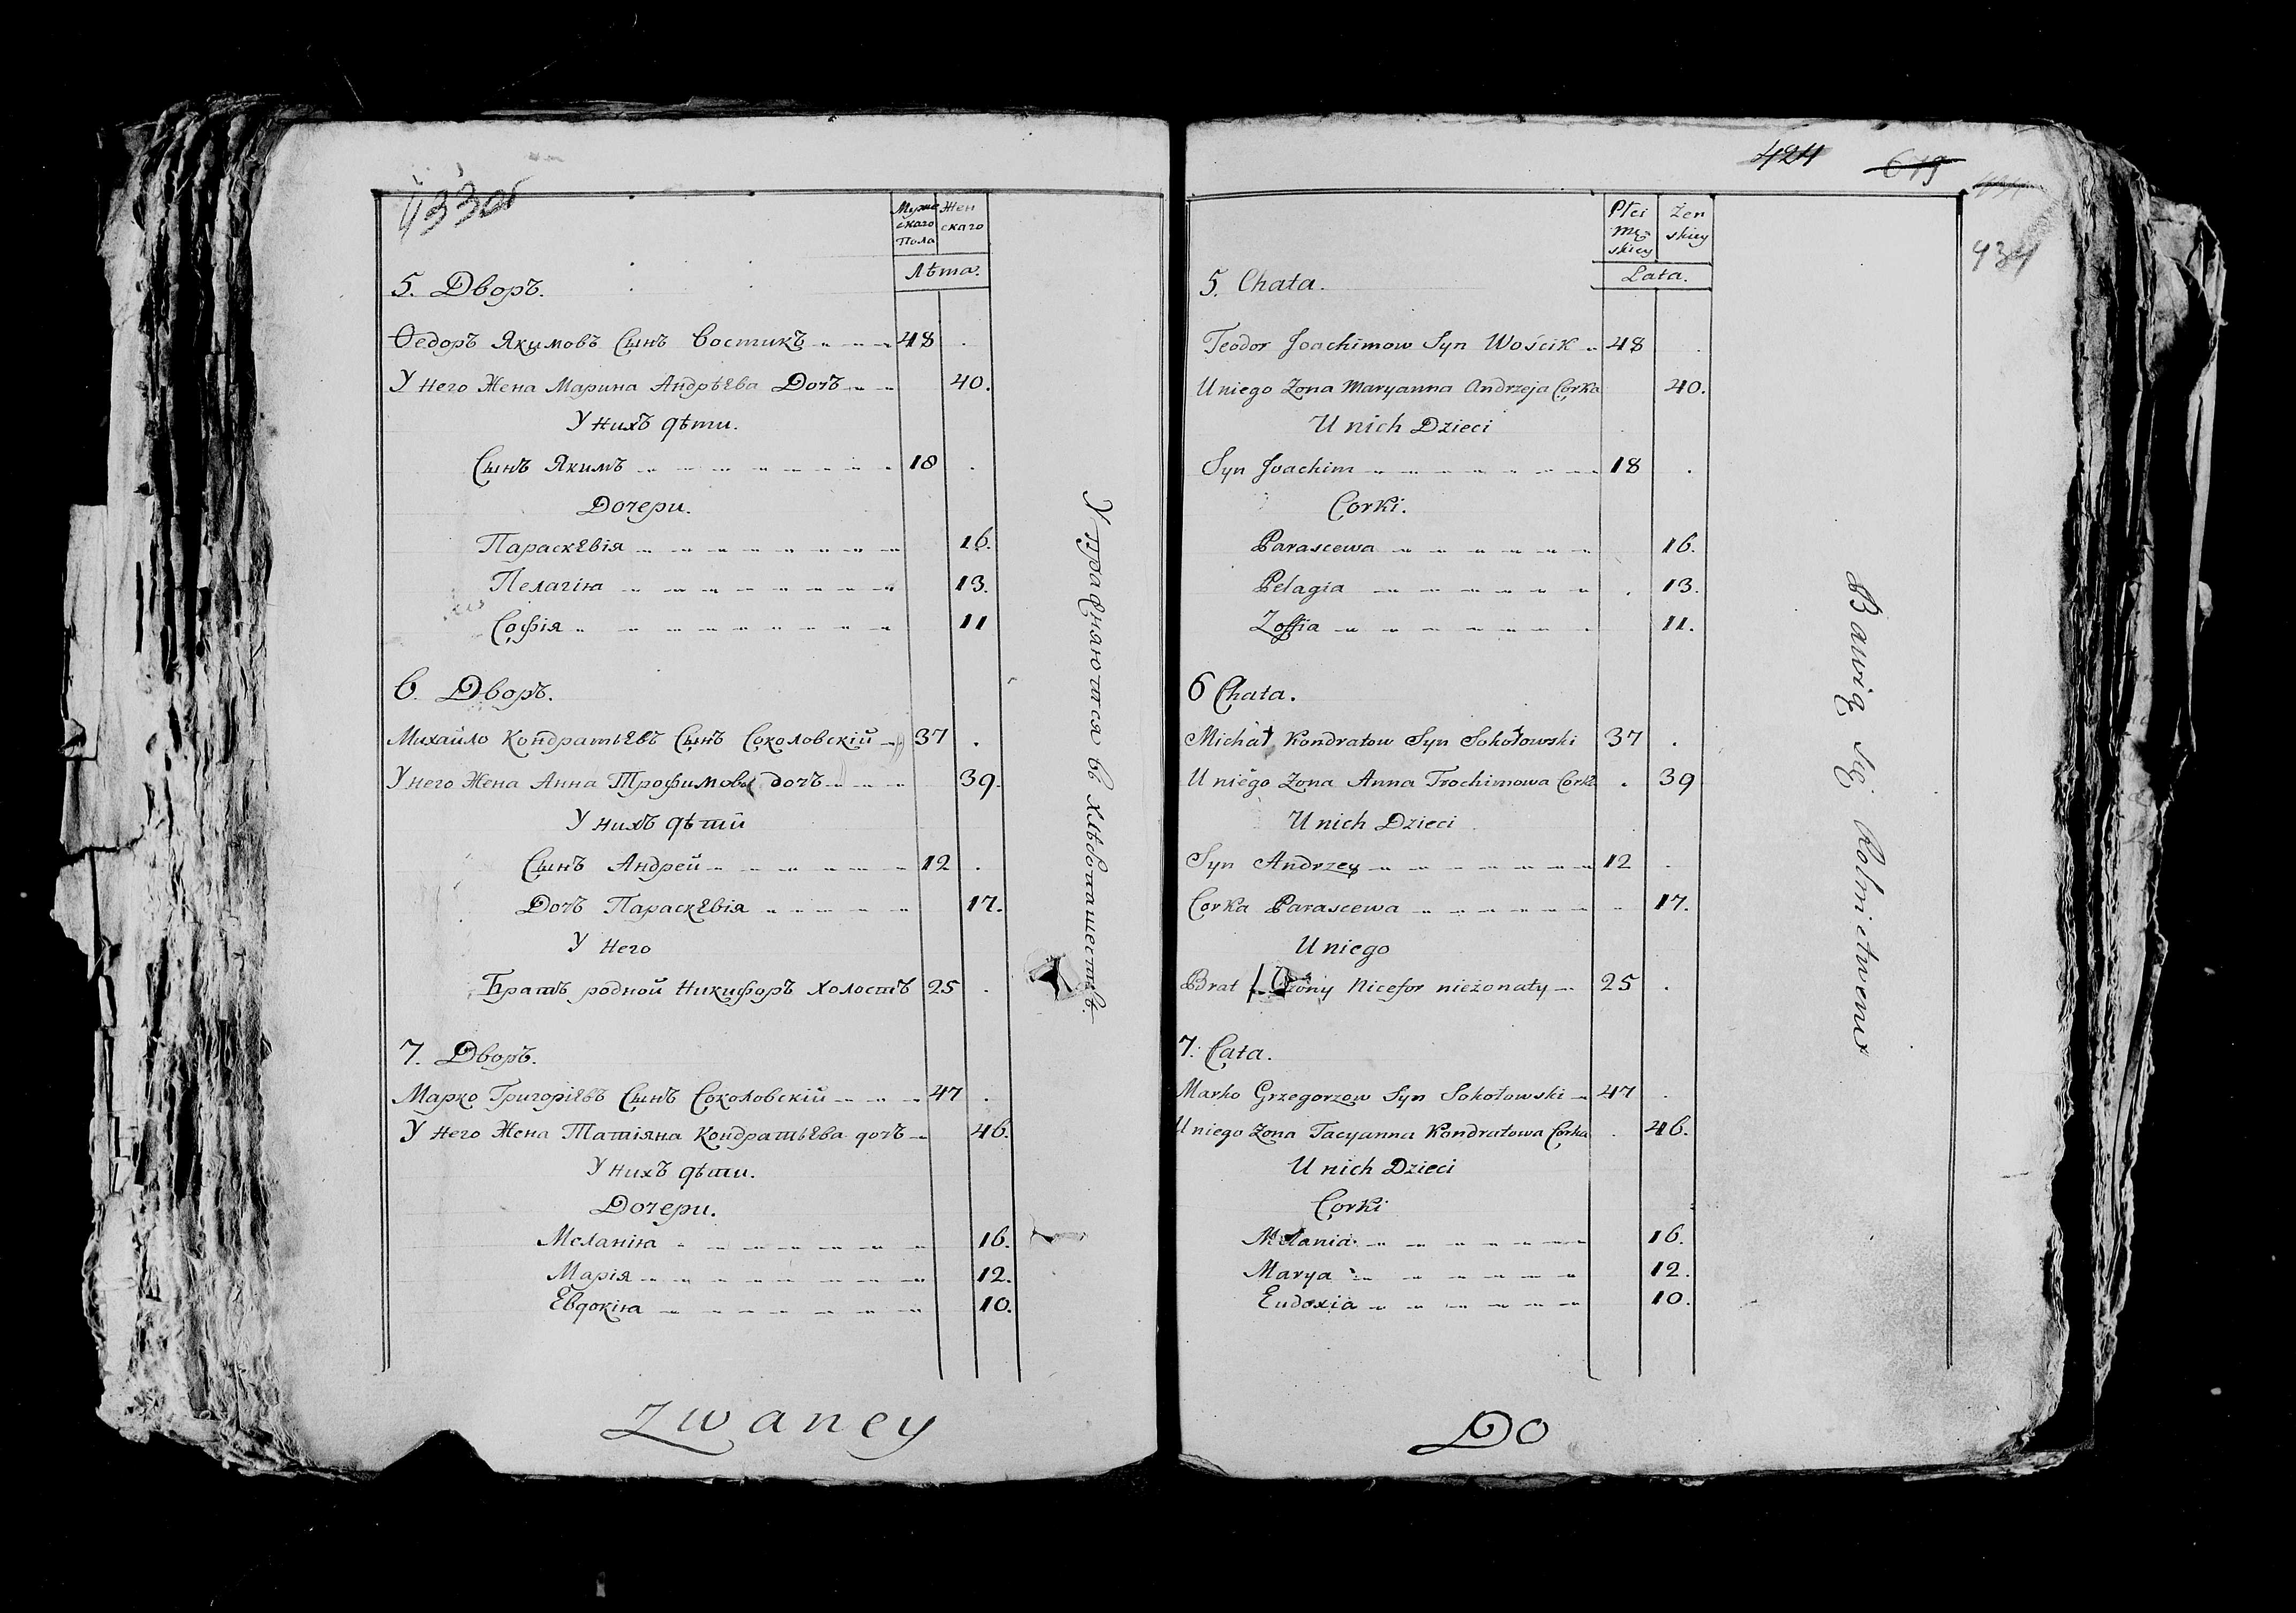 433об
Муже Жен
скаго скаго
Пола
Лѣта.
5. Дворъ.
Ѳедоръ Якимовъ Сынъ Востикъ 48
У него Жена Марина Андрѣева Дочь 40.
У нихъ дѣти.
Сынъ Якимъ 18
Дочери.
Параскевія 16.
Пелагія 13.
Софія 11
6. Дворъ.
Михайло Кондратьевъ Сынъ Соколовскій 37
У него Жена Анна Трофимова дочь 39.
У нихъ дѣти
Сынъ Андрей 12
Дочь Параскевія 17.
У Него
Братъ родной Никифоръ Холостъ 25
7. Дворъ.
Марко Григоріевъ Сынъ Соколовскій 47
У него Жена Татіяна Кондратьева дочь 46.
У нихъ дѣти.
Дочери.
Меланія 16.
Марія 12.
Евдокія 10.
Упражняются въ хлѣбопашествѣ.
Zwaney
424 679
434
Płci Żen
Mę skiey
skiey
Lata.
5. Chata.
Teodor Joachimow Syn Wościk 48
U niego Zona Maryanna Andrzeja Corka 40.
U nich Dzieci
Syn Joachim 18
Corki.
Parascewa 16.
Pelagia 13.
Zoffia 11.
6 Chata.
Michał Kondratow Syn Sokołowski 37
U niego Zona Anna Trochimowa Corka 39
U nich Dzieci
Syn Andrzey 12
Corka Parascewa 17.
U niego
Brat Nicefor nieżonaty 25
7. Cata.
Marko Grzegorzow Syn Sokołowski 47
U niego Zona Tacyanna Kondratowa Corka 46.
U nich Dzieci
Corki
Melania 16.
Marya 12.
Eudoxia 10.
Bawią się Rolnictwem
Do